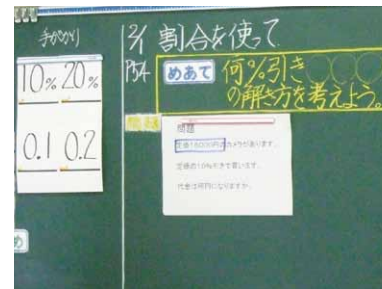 手がかり
10% 20%
0.1 0.2
2/1 割合を使って
P54
めあて 何%引き
の解き方を考えよう。
問題
問題
定価15000円のカメラがあります。
定価の10%引きで買います。
代金は何円になりますか。
め